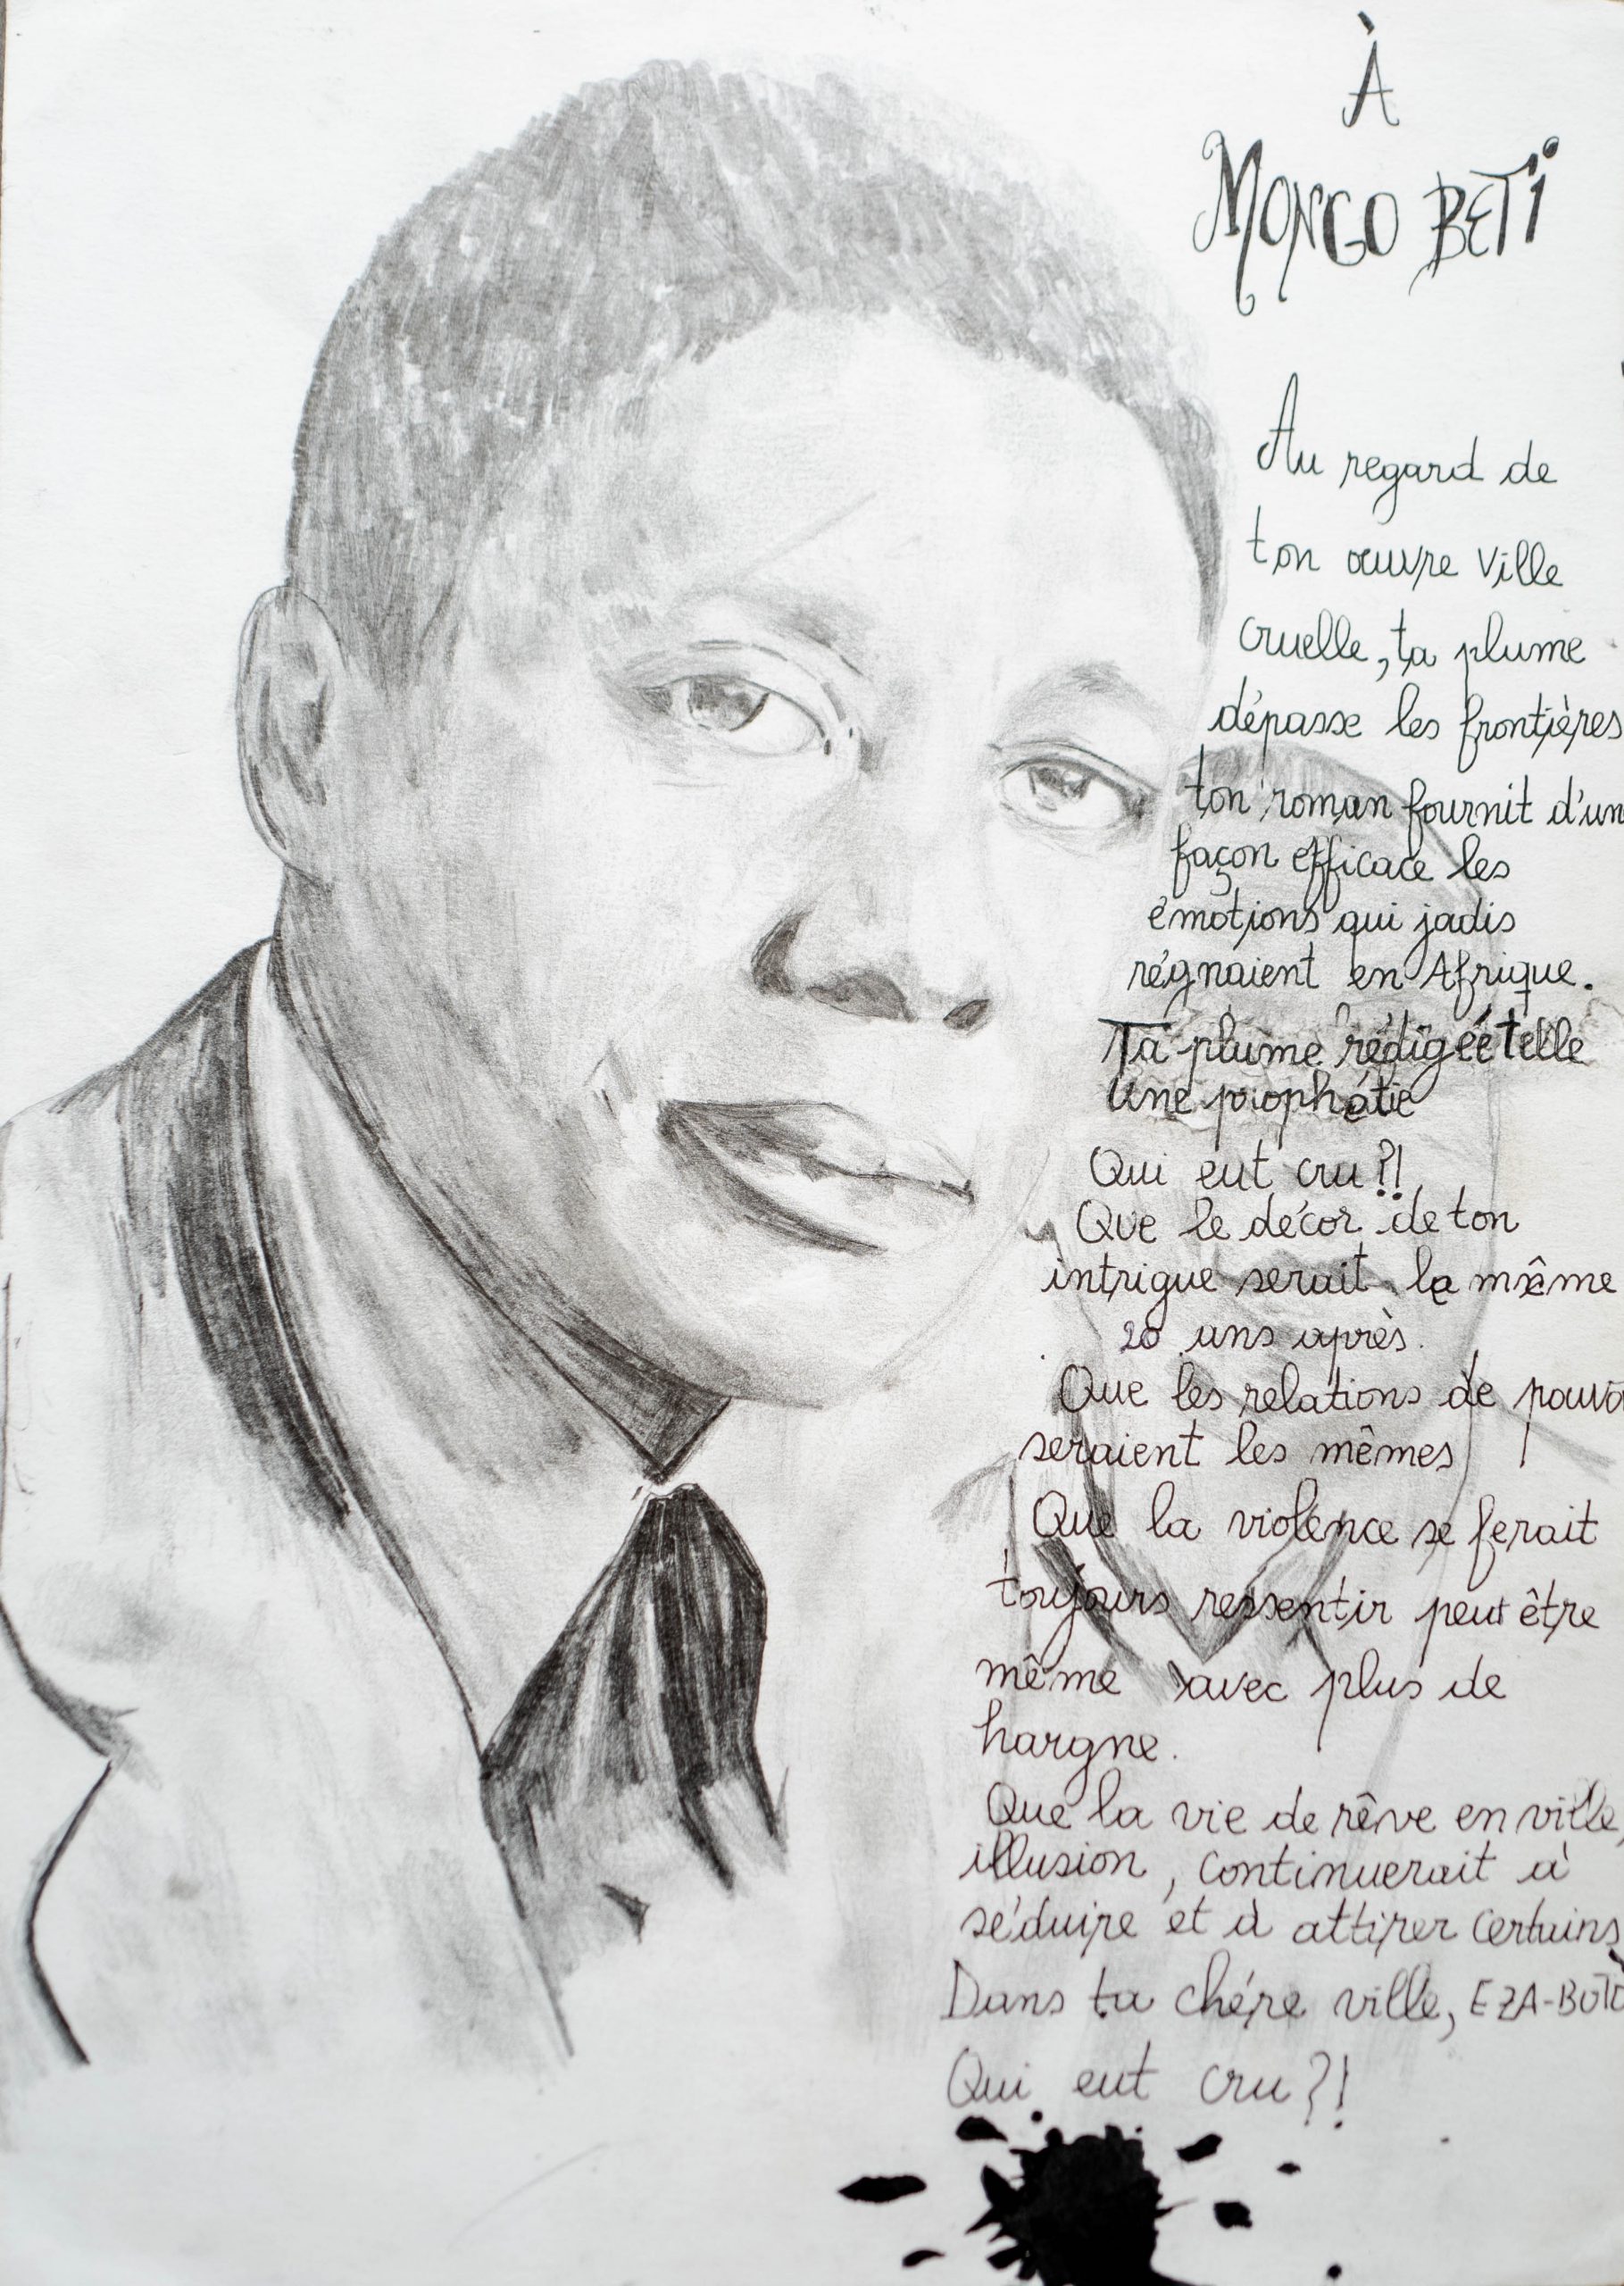 À
MONGO BETI
Au regard de
ton œuvre Ville
cruelle, ta plume
dépasse les frontières
ton roman fournit d'un
façon efficace les
émotions qui jadis
régnaient en Afrique.
Ta plume rédigée telle
Une prophétie
Qui eut cru ?!
Que le décor de ton
intrigue serait le même
20 ans après.
Que les relations de pouvoi
seraient les mêmes !
Que la violence se ferait
toujours ressentir peut être
même avec plus de
hargne.
Que la vie de rêve en ville,
illusion, continuerait à
séduire et à attirer certains
Dans ta chére ville, EZA-BOTO
Qui eut cru ?!